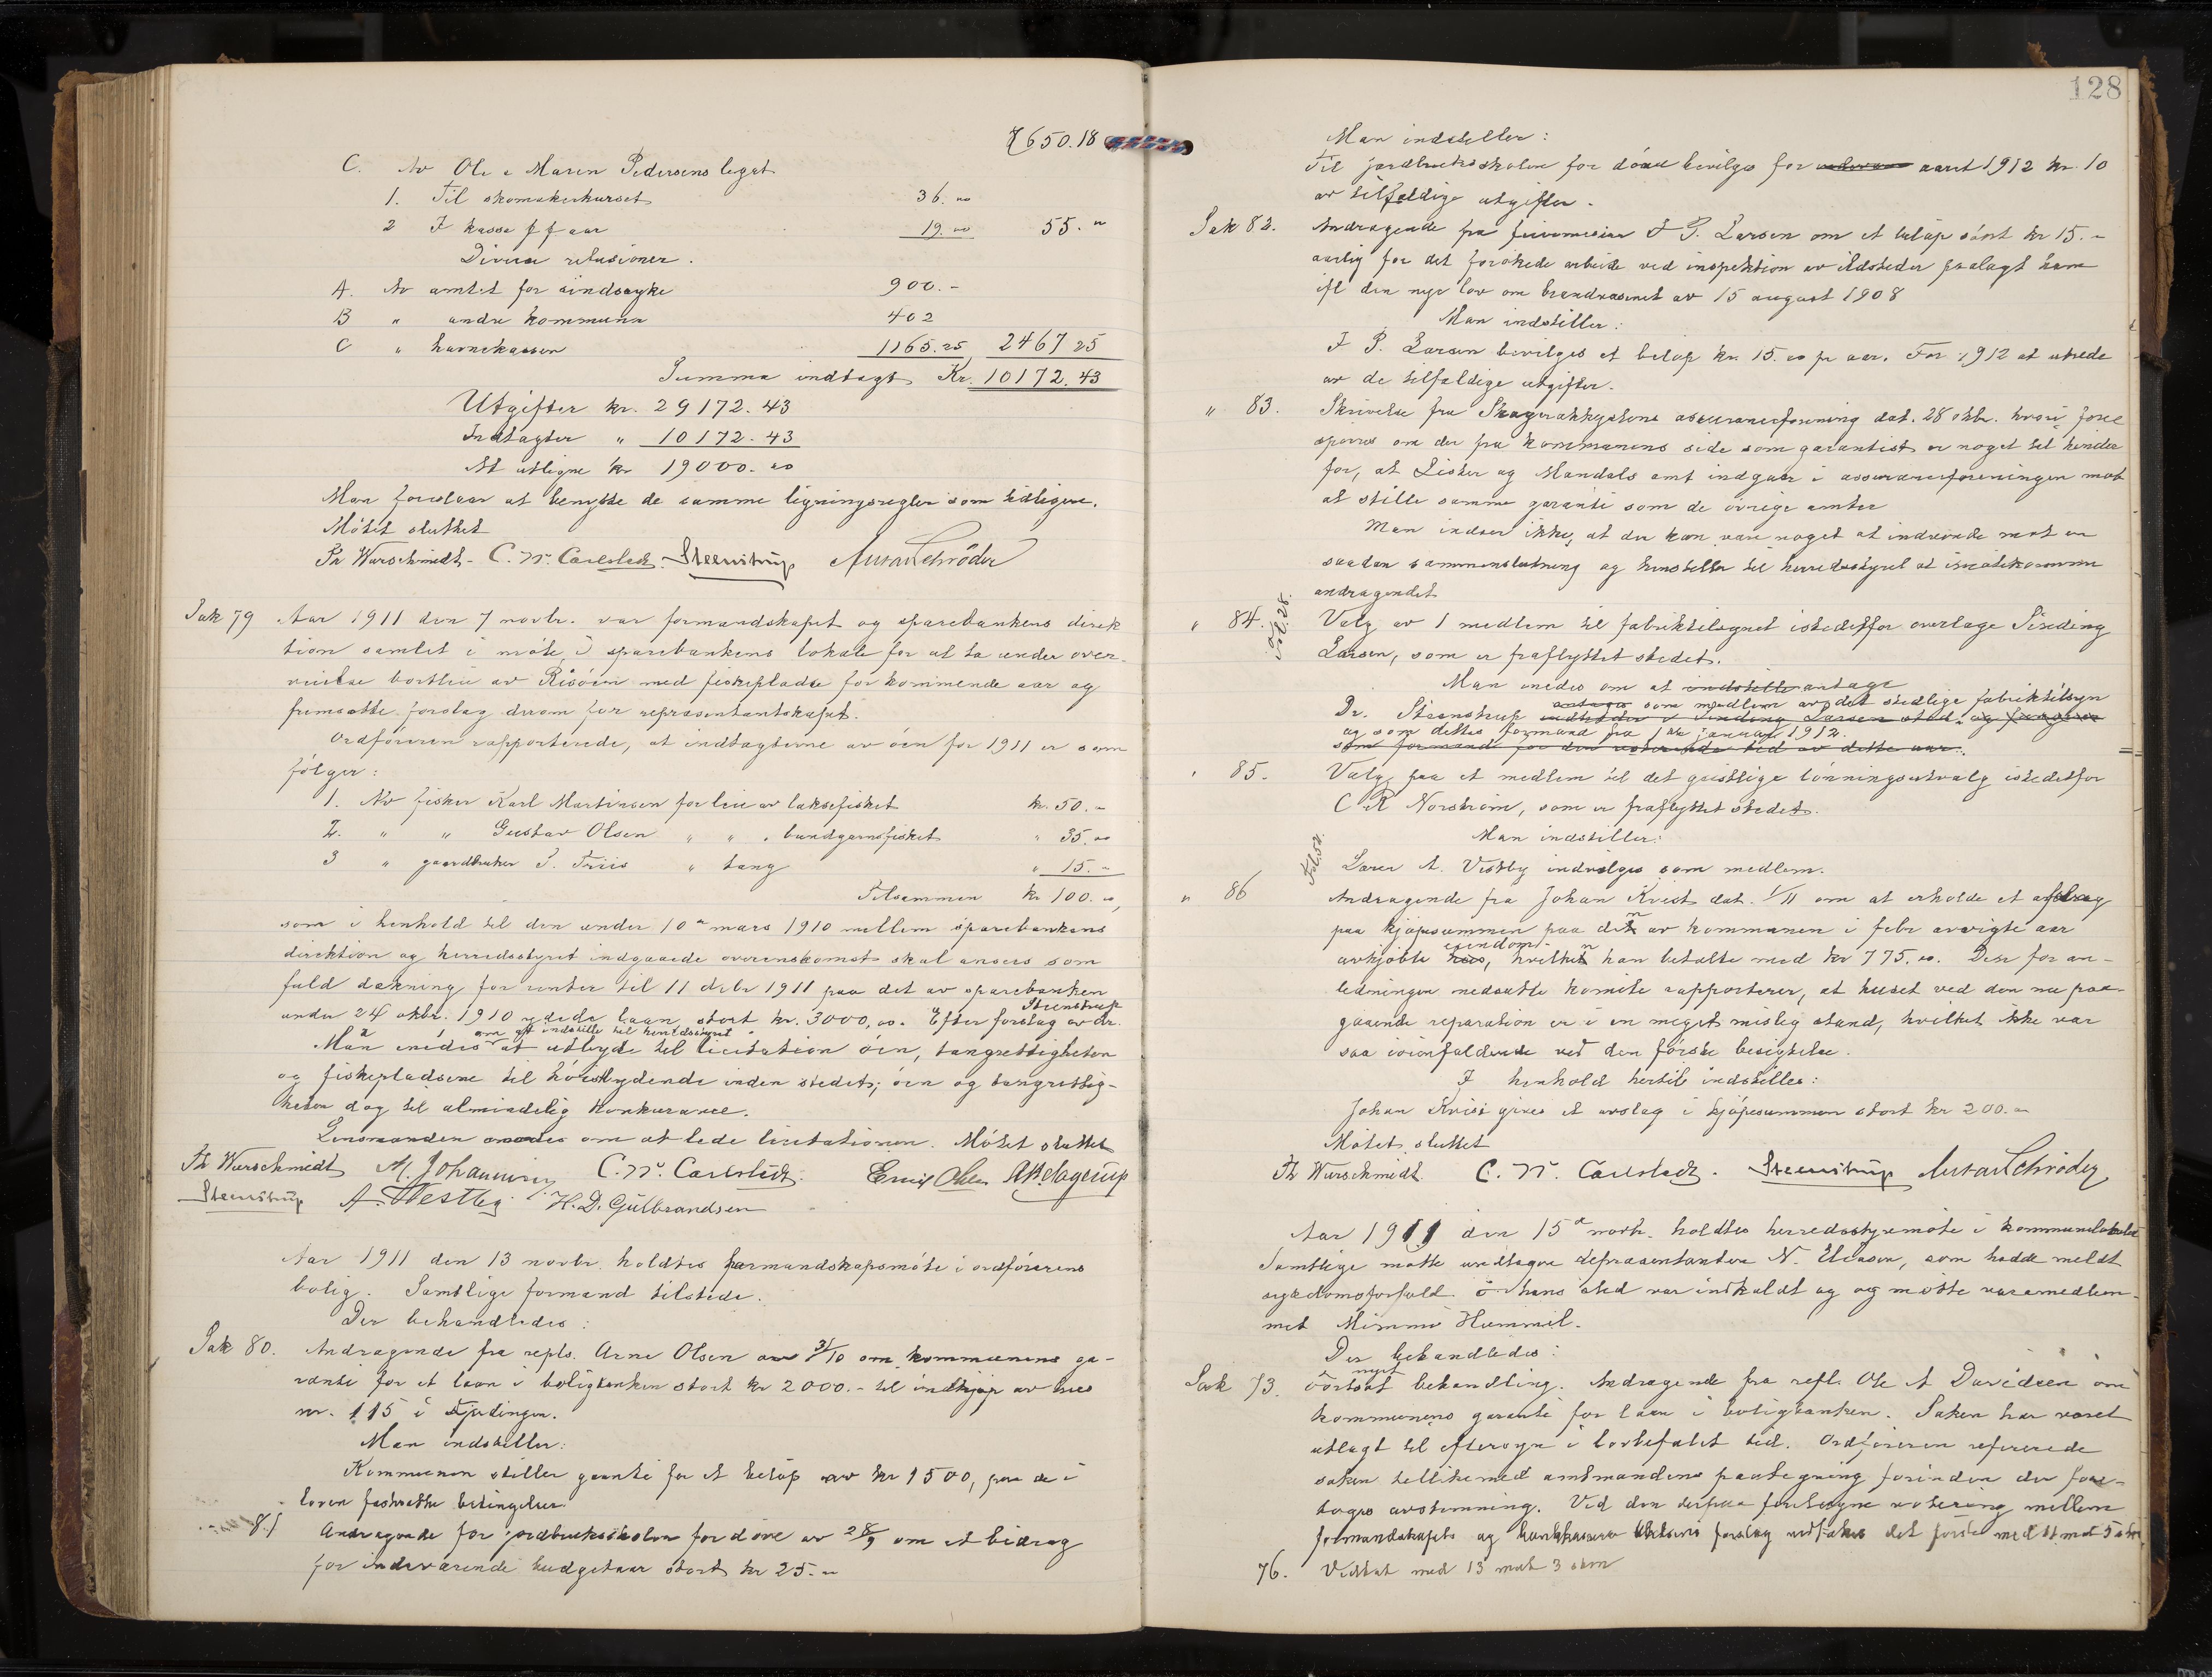 7650.18
C. Av Ole & Maren Pedersens legat
1. Til skomakerkurset 36.00
2 I kassa f f aar 19.00 55.00
Diverse refusioner.
A. Av amtet for sindssyke 900.-
B " andre kommuner 402
C " havnekassen 1165.25 2467 25
Summa indtægt Kr. 10172.43
Utgifter kr. 29172.43
Indtægter " 10172.43
At utligne kr 19000.00
Man foreslaar at benytte de samme ligningsregler som tidligere.
Mötet sluttet
Th Wurschmidt - C. N. Carlstedt. Steenstrup Schröder
Sak 79 Aar 1911 den 7 novbr. var formandskapet og sparebankens direk
tion samlet i möte i sparebankens lokale for at ta under over-
veielse bortleie av Risöen med fiskepladse for kommende aar og
fremsatte forslag derom for representantskapet.
Ordföreren rapporterede, at indtægterne av öen for 1911 er som
fölger:
1. Av fisker Karl Martinsen for leie av laksefisket kr. 50.-
2. " " Gustav Olsen " " " bundgarnsfisket " 35.00
3 " gaardbruker P. Friis " tang " 15.-
Tilsammen kr 100.00,
som i henhold til den under 10de mars 1910 mellem sparebankens
direktion og herredsstyret indgaaede overenskomst skal ansees som
fuld dækning for renter til 11 debr 1911 paa det av sparebanken
under 24 oktbr. 1910 ydede laan stort kr. 3000,00. Efter forslag av dr. Steenstrup
Man enedes om at indstille til herredsstyret at utbyde til licitation öen, tangrettigheten
og fiskepladsene til höistbydende inden stedet; öen og tangrettig-
heten dog til almindelig konkurance.
Lensmanden anmodes om at lede licitationen. Mötet sluttet
Th Wurschmidt M. Johannesen C. N. Carlstedt. Emil Olsen
Steenstrup A. Westby. H. D. Gulbrandsen
Aar 1911 den 13 novbr. holdtes formandskapsmöte i ordförerens
bolig. Samtlige formænd tilstede.
Der behandledes:
Sak 80. Andragende fra repls. Arne Olsen av 31/10 om kommunens ga-
ranti for et laan i boligbanken stort kr 2000.- til indkjöp av hus
nr. 115 i Fjeldingen.
Man indstiller:
Kommunen stiller garanti for et belöp av kr 1500, paa de i
loven fastsatte betingelser.
81 Andragende for jordbruksskolen for döve av 28/9 om et bidrag
for indeværende budgetaar stort kr 25.00
128
Man indstiller:
Til jordbruksskolen for döve bevilges for aaret 1912 kr. 10
av tilfældige utgifter.
Sak 82. Andragende fra feiermester I P. Larsen om et belöp stort kr 15.-
aarlig for det forökede arbeide ved inspektion av ildsteder paalagt ham
ifl den nye lov om brandvæsenet av 15 august 1908
Man indstiller:
I P. Larsen bevilges et belöp kr. 15.00 pr aar. For 1912 at utrede
av de tilfældige utgifter.
" 83. Skrivelse fra Skagerakkystens assuranceforening dat. 28 oktbr. hvori fore
spörres om der fra kommunens side som garantist er noget til hinder
for, at Lister og Mandals amt indgaar i assuranceforeningen mot
at stille samme garanti som de övrige amter
Man indser ikke, at der kan være noget at indvende mot en
saadan sammenslutning og henstiller til herredsstyret at imötekomme
andragendet
" 84. Valg av 1 medlem til fabriktilsynet istedetfor overlæge Sinding
Larsen, som er fraflyttet stedet.
Man enedes om at indstille antage
Dr. Steenstrup antages som medlem av det stedlige fabriktilsyn
indtræder i Sinding Larsens sted og fungerer
og som dettes formand fra 1ste januar 1912.
som formand for den resterende tid av dette aar.
" 85. Valg paa et medlem til det geistlige lönningsutvalg istedetfor
C R Norström, som er fraflyttet stedet.
Man indstiller:
Lærer A. Vestby indvælges som medlem.
" 86 Andragende fra Johan Kvist dat. 1/11 om at erholde et afdrag
paa kjöpesummen paa den av kommunen i febr avvigte aar
avkjöbte eiendom hus, hvilken han betalte med kr 775.00. Den for an-
ledningen nedsatte komite rapporterer, at huset ved den nu paa-
gaaende reparation er i en meget mislig stand, hvilket ikke var
saa iöinefaldende ved den förste besigtelse.
I henhold hertil indstilles:
Johan Kvist gives et avslag i kjöpesummen stort kr 200.00
Mötet sluttet
Th Wurschmidt. C. N. Carlstedt. Steenstrup Schröder
Aar 1911 den 15de novbr. holdtes herredsstyremöte i kommunelokalet
Samtlige mötte undtagen repræsentanten N. Eliasen, som hadde meldt
sygdomsforfald. I hans sted var indkaldt og og mötte varamedlem-
met Mimmi Hummel.
Der behandledes:
Sak 73. Fortsat nyet behandling. Andragende fra repl. Ole A Davidsen om
kommunens garanti for laan i boligbanken. Saken har været
utlagt til eftersyn i lovbefalet tid. Ordföreren refererede
saken tillikemed amtmandens paategning forinden der fore-
toges avstemning. Ved den derpaa foretagne votering mellem
formandskapets og forslag vedtokes det förste med 11 mot 5 stm.
76. Vedtat med 13 mot 3 stm